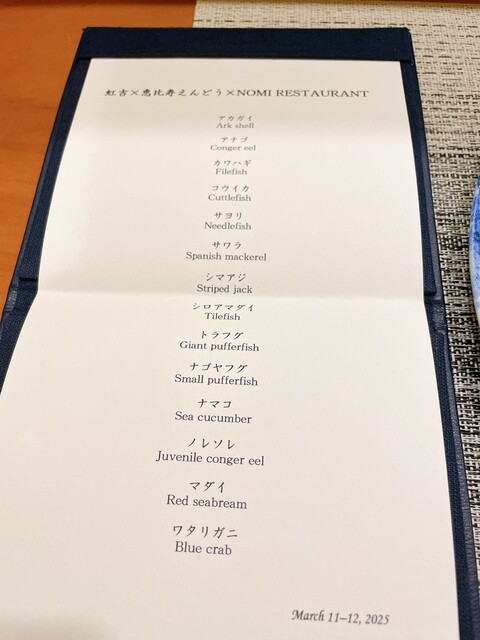 虹吉×恵比寿えんどう×NOMI RESTAURANT
アカガイ
Ark shell
アナゴ
Conger eel
カワハギ
Filefish
コウイカ
Cuttlefish
サヨリ
Needlefish
サワラ
Spanish mackerel
シマアジ
Striped jack
シロアマダイ
Tilefish
トラフグ
Giant pufferfish
ナゴヤフグ
Small pufferfish
ナマコ
Sea cucumber
ノレソレ
Juvenile conger eel
マダイ
Red seabream
ワタリガニ
Blue crab
March 11–12, 2025